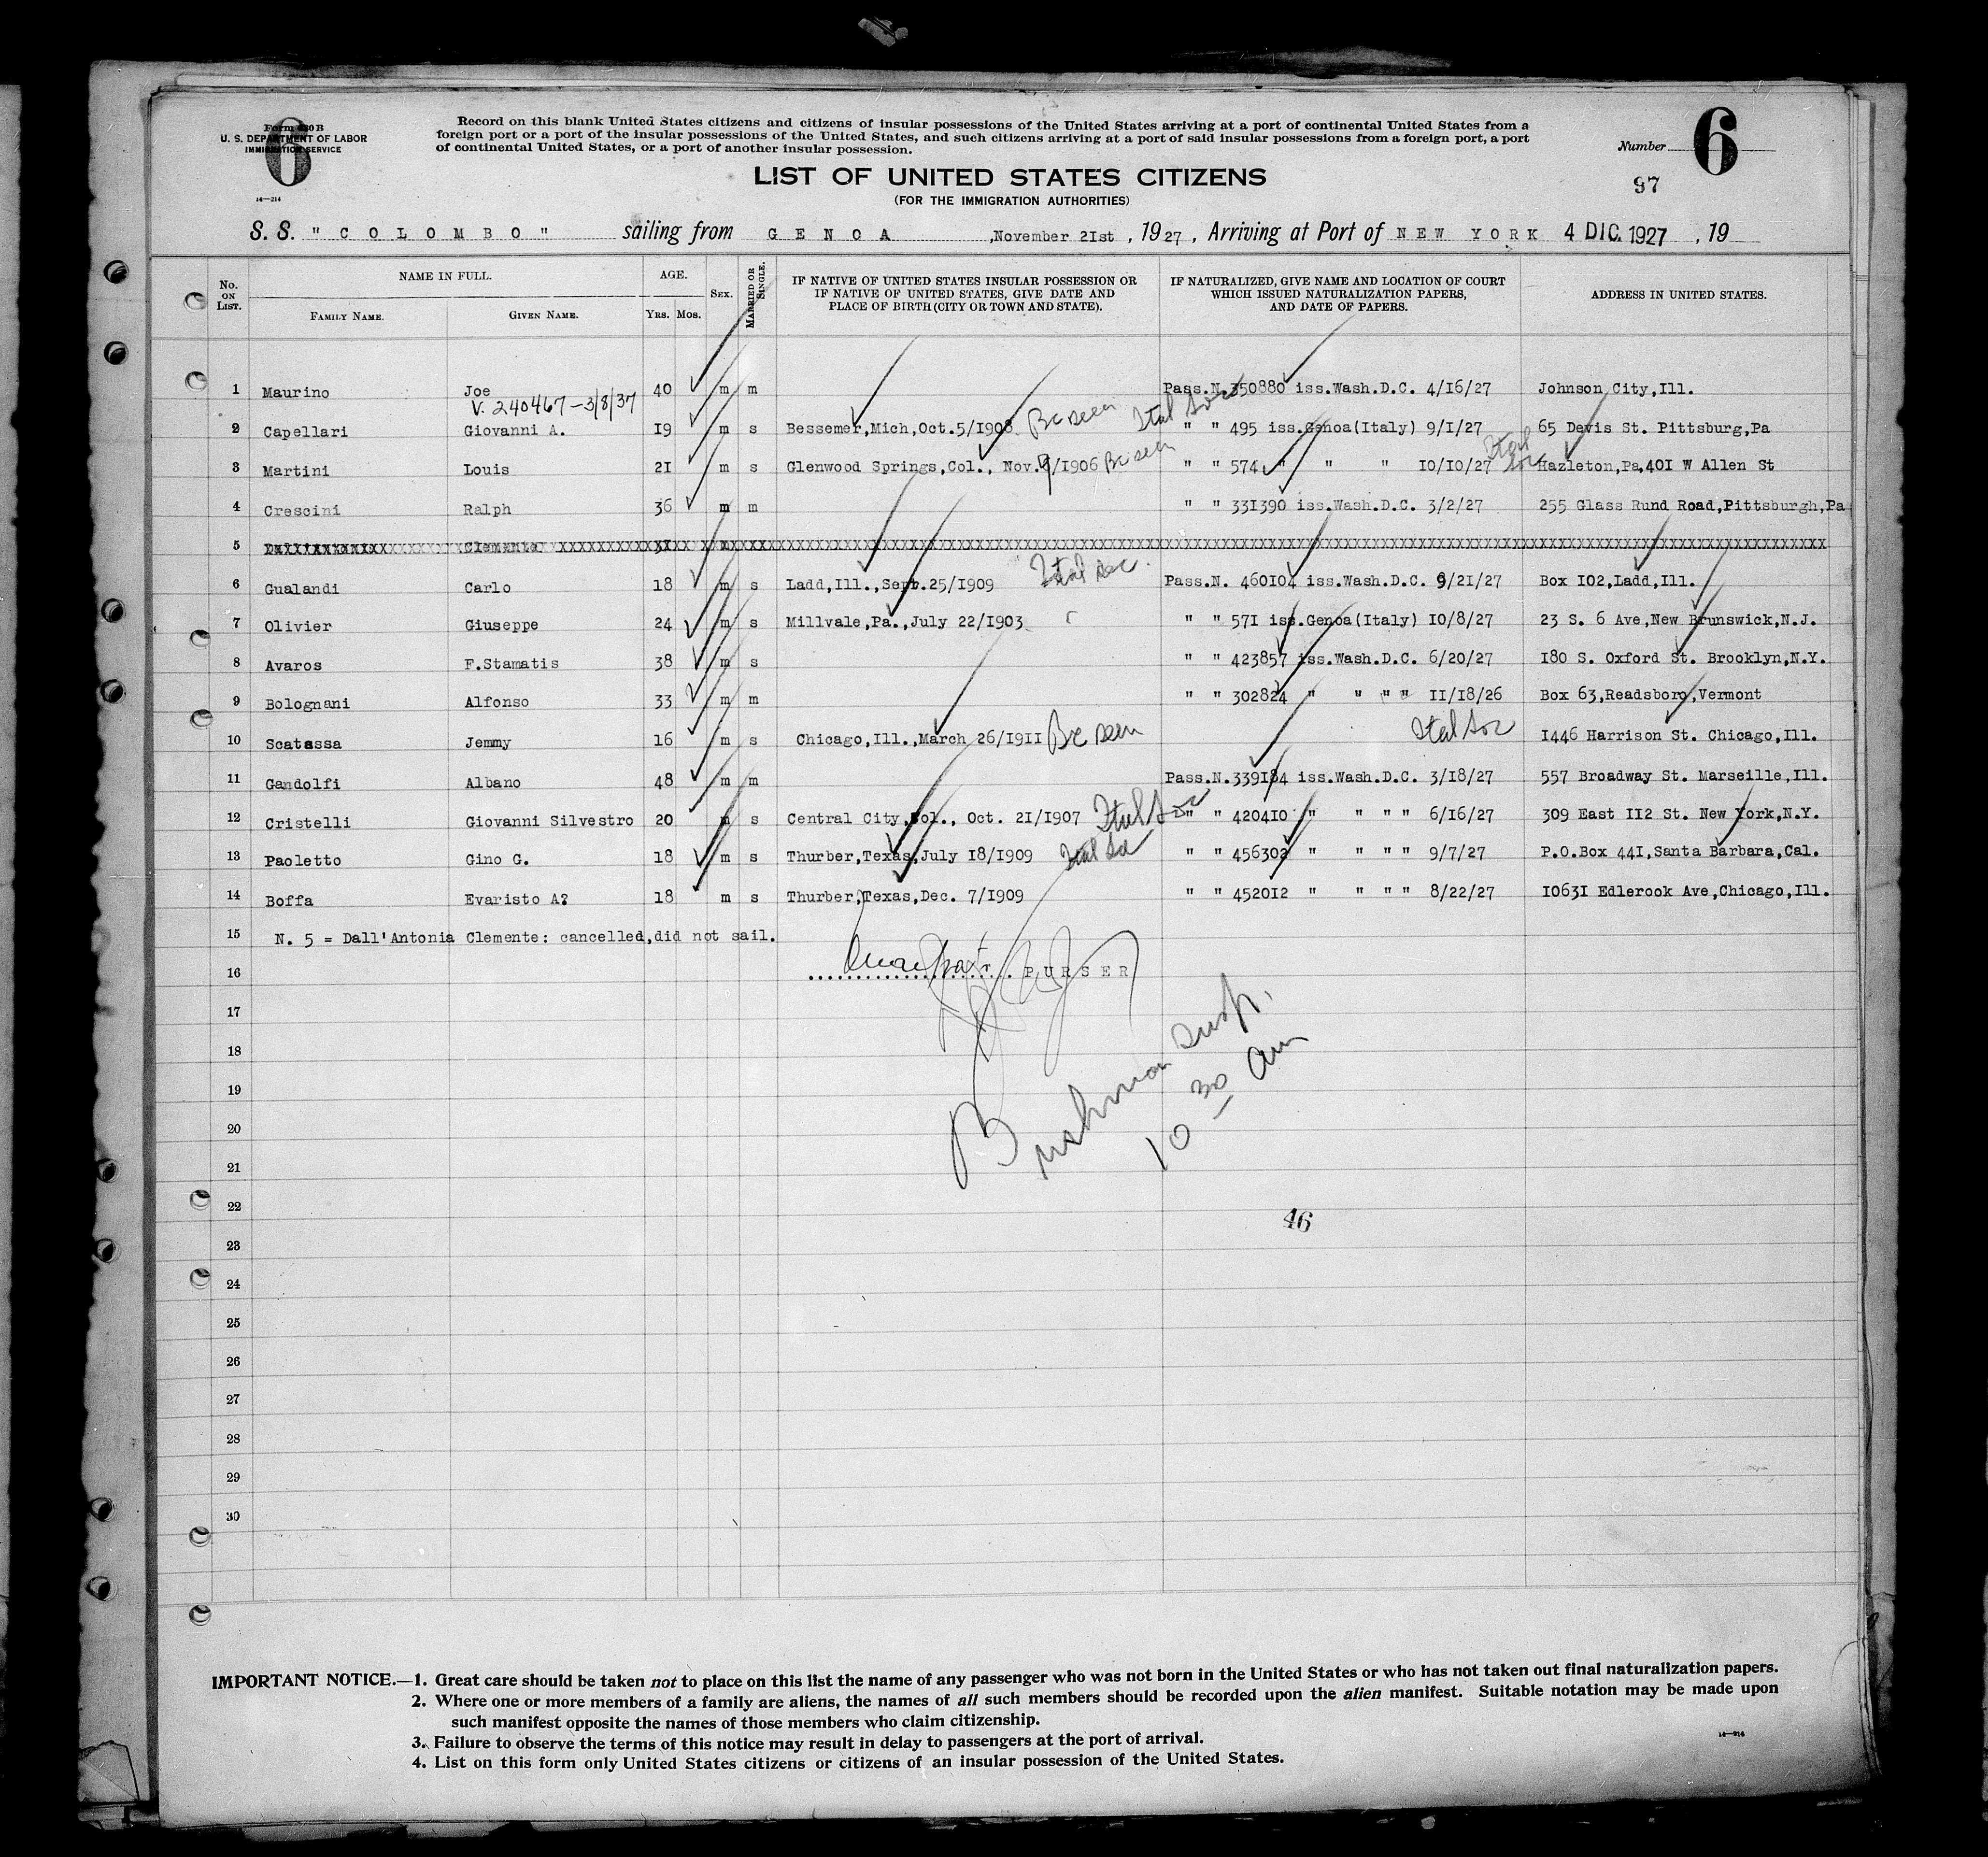 Form 630 B
U. S. DEPARTMENT OF LABOR
IMMIGRATION SERVICE
6
14—214
Record on this blank United States citizens and citizens of insular possessions of the United States arriving at a port of continental United States from a
foreign port or a port of the insular possessions of the United States, and such citizens arriving at a port of said insular possessions from a foreign port, a port
of continental United States, or a port of another insular possession.
Number 6
97
LIST OF UNITED STATES CITIZENS
(FOR THE IMMIGRATION AUTHORITIES)
S. S. "COLOMBO" sailing from GENOA, November 21st, 1927, Arriving at Port of NEW YORK 4 DIC. 1927, 19
No. ON LIST. NAME IN FULL. FAMILY NAME. GIVEN NAME. AGE. YRS. MOS. SEX. MARRIED OR SINGLE. IF NATIVE OF UNITED STATES INSULAR POSSESSION OR IF NATIVE OF UNITED STATES, GIVE DATE AND PLACE OF BIRTH (CITY OR TOWN AND STATE). IF NATURALIZED, GIVE NAME AND LOCATION OF COURT WHICH ISSUED NATURALIZATION PAPERS, AND DATE OF PAPERS. ADDRESS IN UNITED STATES.
1 Maurino Joe 40 m m Pass.N.350880 iss.Wash.D.C. 4/16/27 Johnson City,Ill.
V. 240467-3/8/37
2 Capellari Giovanni A. 19 m s Bessemer,Mich,Oct.5/1908 Bc seen Ital Soc " " 495 iss.Genoa(Italy) 9/1/27 65 Devis St. Pittsburg,Pa
3 Martini Louis 21 m s Glenwood Springs,Col., Nov.9/1906 Bc seen " " 574 " " " 10/10/27 Ital Soc Hazleton,Pa,401 W Allen St
4 Crescini Ralph 36 m m " " 331390 iss.Wash.D.C. 3/2/27 255 Glass Rund Road,Pittsburgh,Pa
5 Clemente
6 Gualandi Carlo 18 m s Ladd,Ill.,Sept.25/1909 Ital Soc. Pass.N. 460104 iss.Wash.D.C. 9/21/27 Box 102,Ladd,Ill.
7 Olivier Giuseppe 24 m s Millvale,Pa.,July 22/1903 " " 571 iss.Genoa(Italy) 10/8/27 23 S. 6 Ave,New Brunswick,N.J.
8 Avaros F.Stamatis 38 m s " " 423857 iss.Wash.D.C. 6/20/27 180 S. Oxford St. Brooklyn,N.Y.
9 Bolognani Alfonso 33 m m " " 302824 " " " " 11/18/26 Box 63,Readsboro,Vermont
10 Scatassa Jemmy 16 m s Chicago,Ill.,March 26/1911 Bc seen Ital Soc 1446 Harrison St. Chicago,Ill.
11 Gandolfi Albano 48 m m Pass.N.339184 iss.Wash.D.C. 3/18/27 557 Broadway St. Marseille,Ill.
12 Cristelli Giovanni Silvestro 20 m s Central City,Col., Oct. 21/1907 Ital Soc " " 420410 " " " " 6/16/27 309 East 112 St. New York,N.Y.
13 Paoletto Gino G. 18 m s Thurber,Texas,July 18/1909 Ital Soc " " 456302 " " " " 9/7/27 P.O.Box 441,Santa Barbara,Cal.
14 Boffa Evaristo A? 18 m s Thurber,Texas,Dec. 7/1909 " " 452012 " " " " 8/22/27 10631 Edlerook Ave,Chicago,Ill.
15 N. 5 = Dall'Antonia Clemente: cancelled,did not sail.
16 PURSER
17
18
19
Bushman Insp.
10 30 am
20
21
22
46
23
24
25
26
27
28
29
30
IMPORTANT NOTICE.—1. Great care should be taken not to place on this list the name of any passenger who was not born in the United States or who has not taken out final naturalization papers.
2. Where one or more members of a family are aliens, the names of all such members should be recorded upon the alien manifest. Suitable notation may be made upon
such manifest opposite the names of those members who claim citizenship.
3. Failure to observe the terms of this notice may result in delay to passengers at the port of arrival.
4. List on this form only United States citizens or citizens of an insular possession of the United States.
14—214